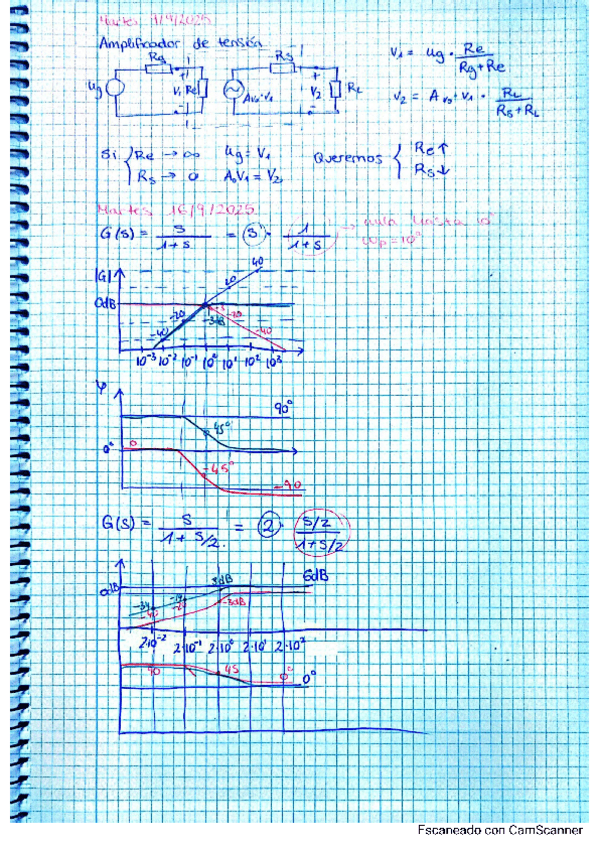 Martes 9/9/2025
Amplificador de tensión
Rg Rs
ug V₁ Re Av₀·V₁ V₂ RL
V₁ = ug · Re / (Rg + Re)
V₂ = Av₀ · V₁ · RL / (Rs + RL)
Si { Re → ∞ ug = V₁
Rs → 0 A₀V₁ = V₂
Queremos { Re ↑
Rs ↓
Martes 16/9/2025
G(s) = s / (1+s) = s · 1 / (1+s) → nula hasta 10⁰
ωp = 10⁰
|G|
40
20
0dB
-3dB
-20 -20
-40 -40
10⁻³ 10⁻² 10⁻¹ 10⁰ 10¹ 10² 10³
φ
90°
45°
0° 0
-45°
-90
G(s) = s / (1 + s/2) = 2 · (s/2) / (1 + s/2)
3dB 6dB
0dB
-34 -14
-40 -20 -3dB
2·10⁻² 2·10⁻¹ 2·10⁰ 2·10¹ 2·10²
90 45 0° 0°
Escaneado con CamScanner